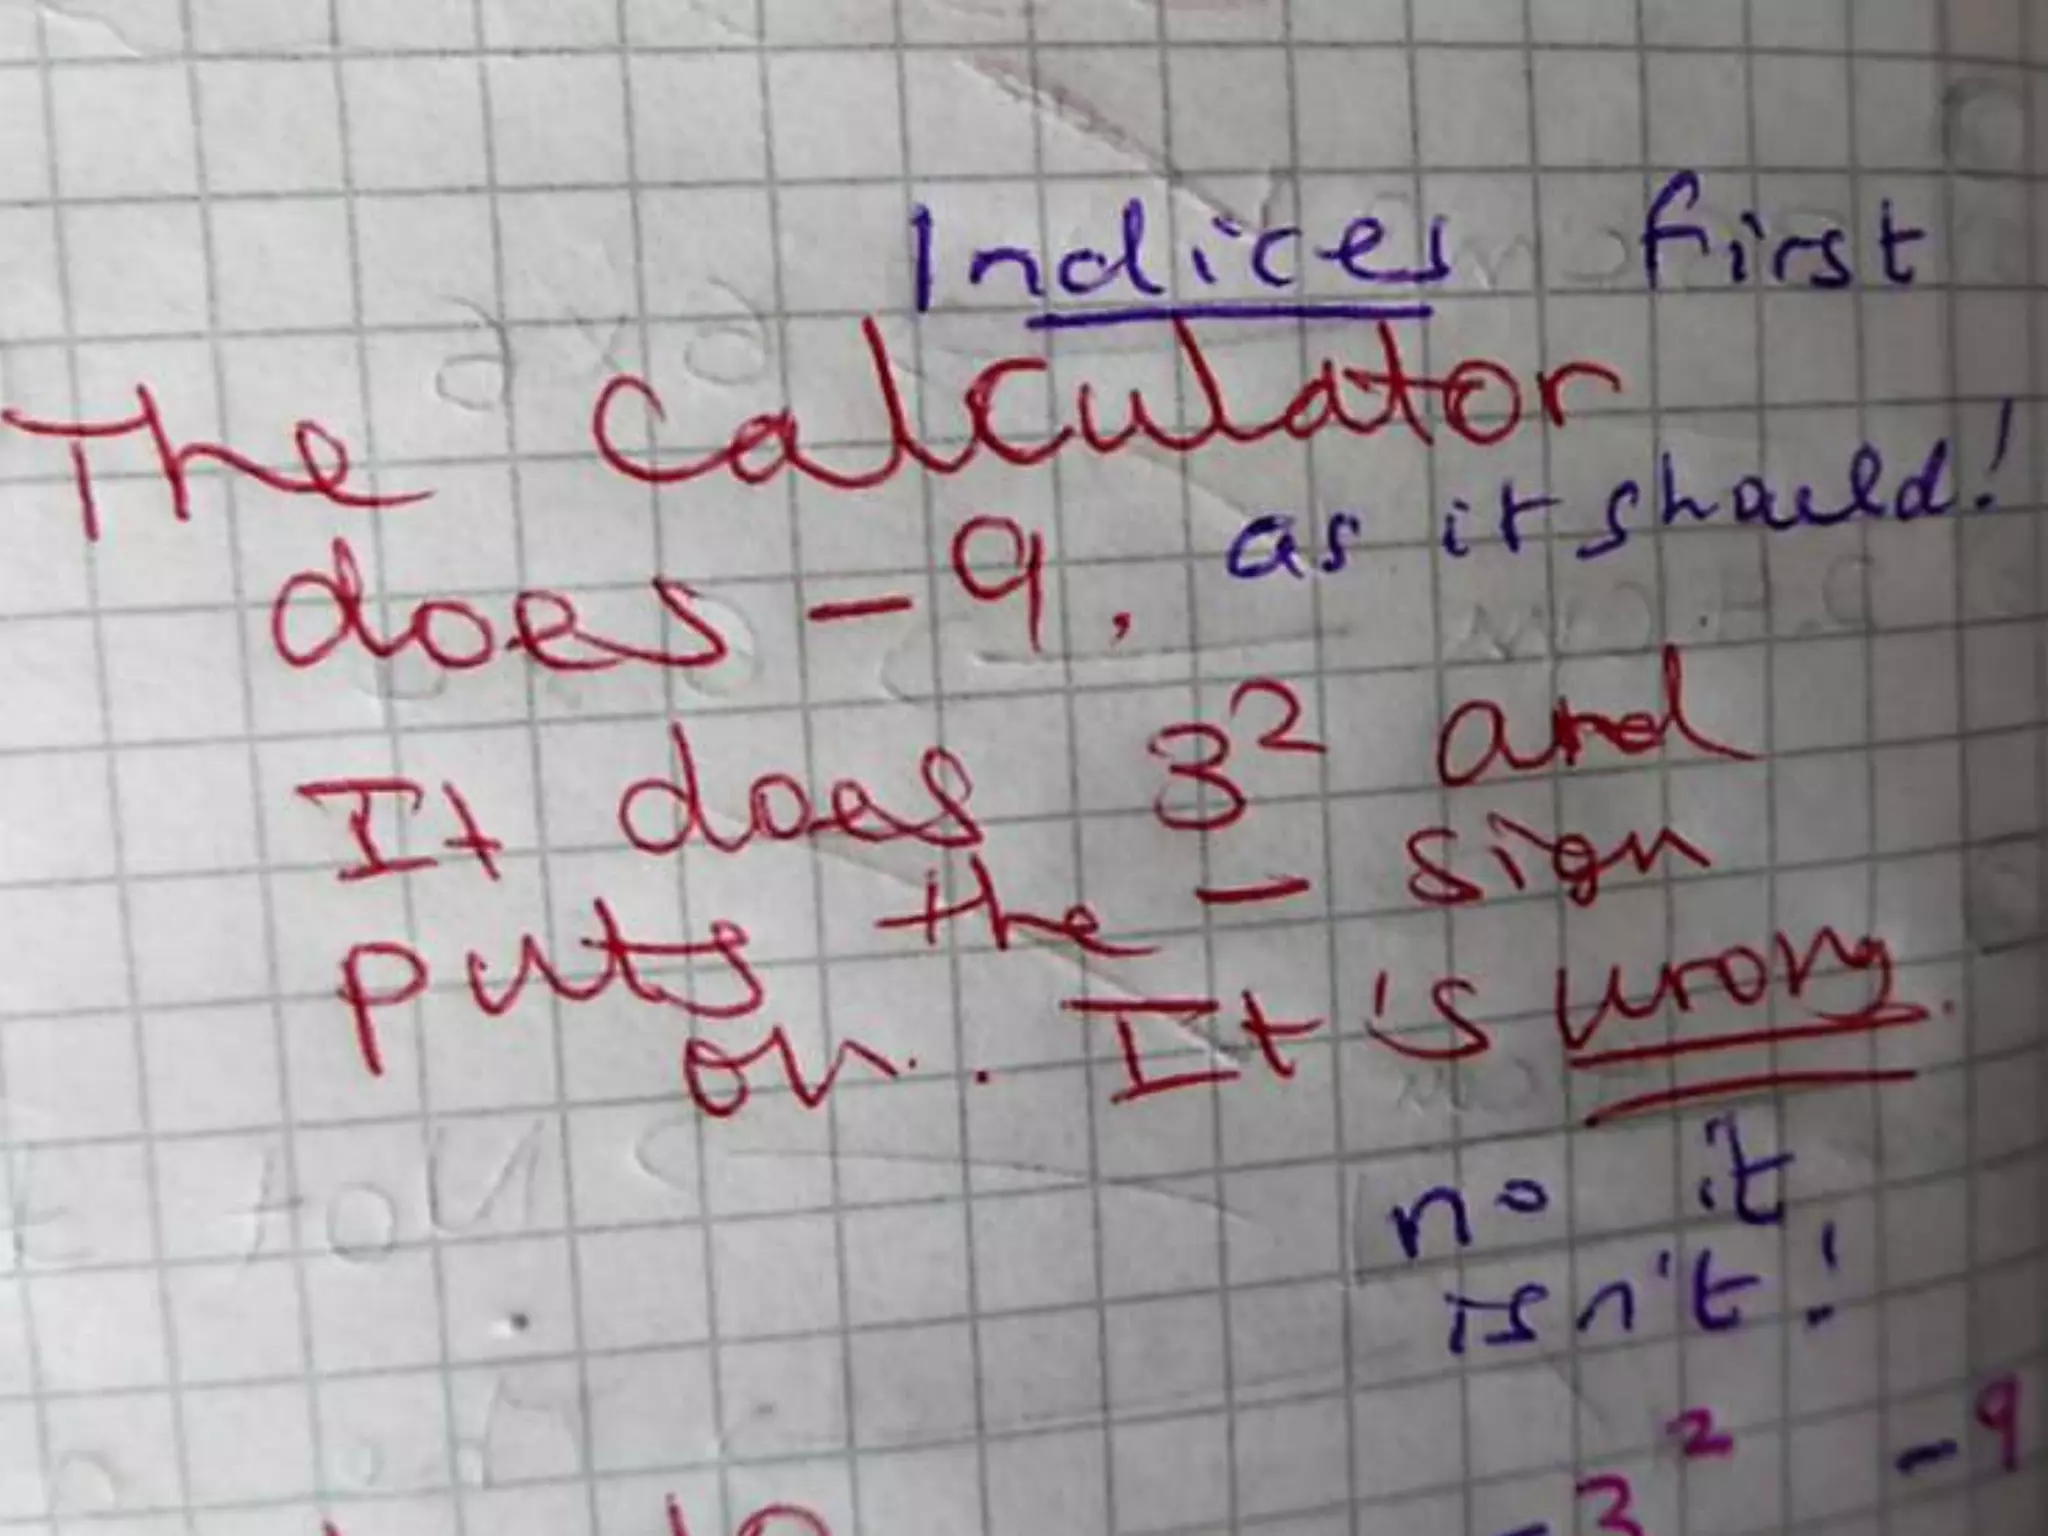 Indices first
The calculator
does -9, as it should!
It does 3² and
puts the - sign
on. It is wrong.
no it
isn't!
-3² -9